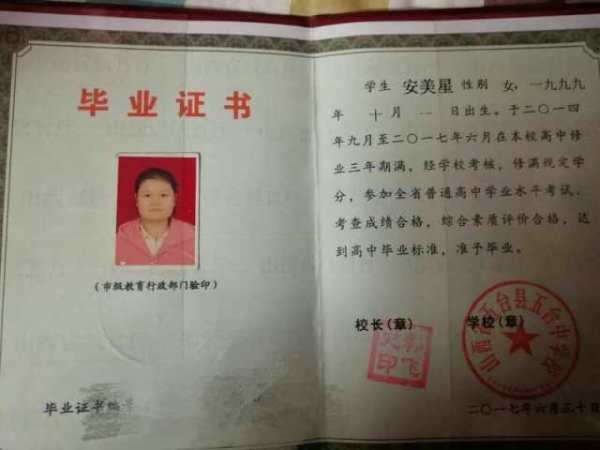 毕业证书
(市级教育行政部门验印)
毕业证书编号
学生 安美星 性别 女，一九九九
年 十月 一 日出生。于二〇一四
年九月至二〇一七年六月在本校高中修
业三年期满，经学校考核，修满规定学
分，参加全省普通高中学业水平考试、
考查成绩合格，综合素质评价合格，达
到高中毕业标准，准予毕业。
校长(章) 学校(章)
山西省五台县五台中学校
二〇一七年六月三十日